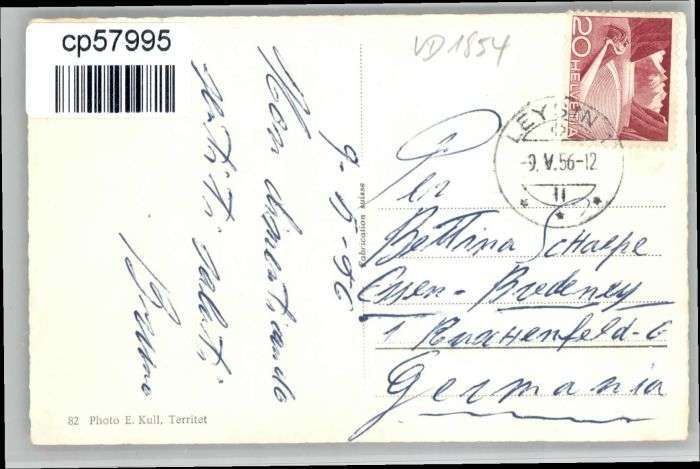 cp57995
VD 1854
20 HELVETIA
LEYSIN
-9.V.56-12
9-5-56
Non dimenticando
saluti
Fabrication suisse
Per
Bettina Schaepe
Essen - Bredeney
1 Ruschenfeld-6
Germania
82 Photo E. Kull, Territet